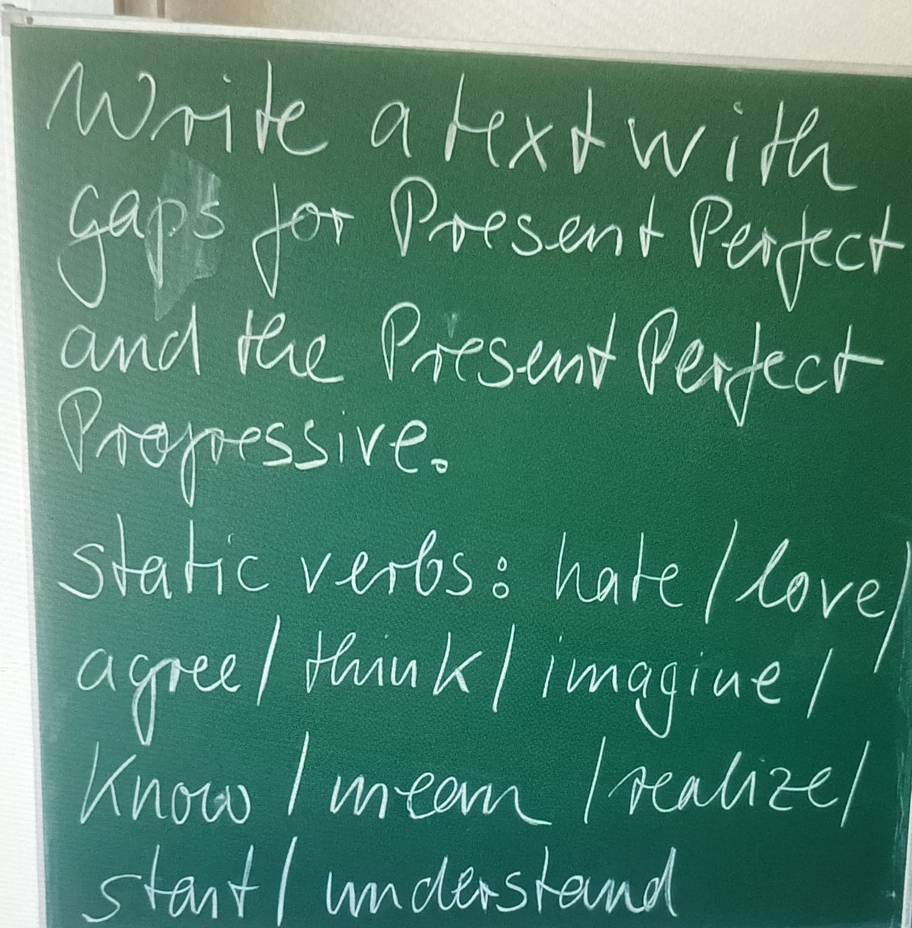 Write a text with
gaps for Present Perfect
and the Present Perfect
Progressive.
static verbs: hate / love /
agree / think / imagine /
know / mean / realize /
start / understand